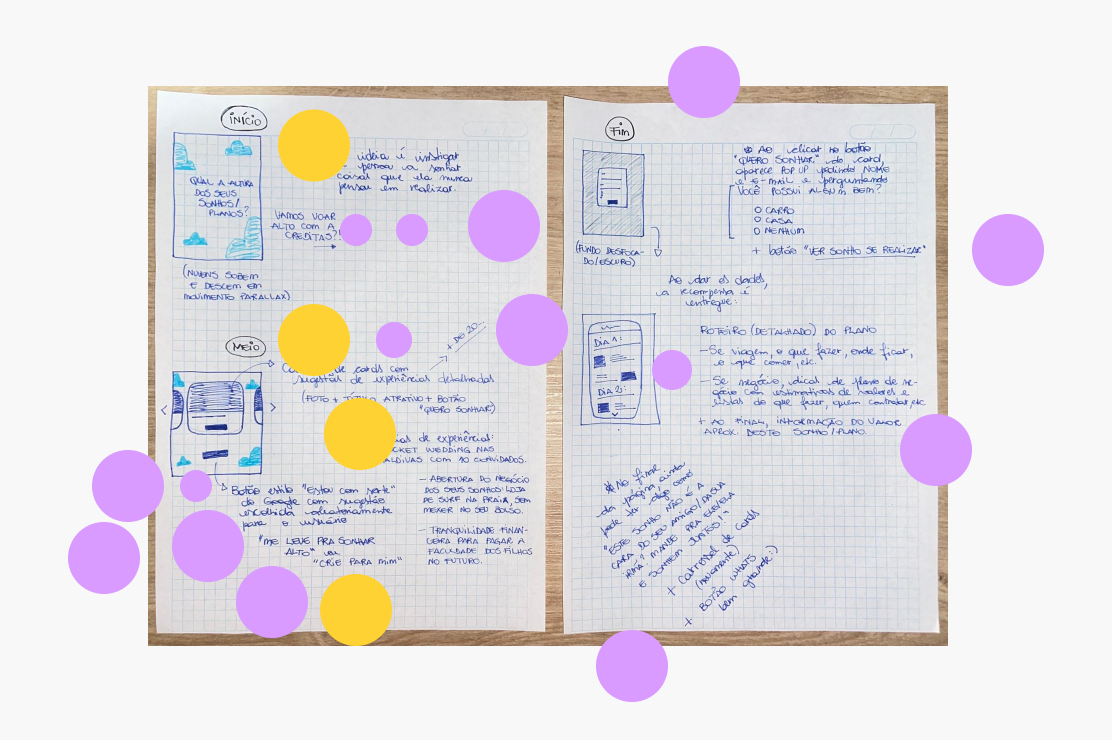 INÍCIO
ideia é instigar
a pessoa a sonhar
coisas que ela nunca
pensou em realizar.
QUAL A ALTURA
DOS SEUS
SONHOS/
PLANOS?
VAMOS VOAR
ALTO COM A
CREDITAS?!
(NUVENS SOBEM
E DESCEM EM
MOVIMENTO PARALLAX)
MEIO
+ DE 20...
que cards com
sugestões de experiências detalhadas
(FOTO + TÍTULO ATRATIVO + BOTÃO
"QUERO SONHAR")
de experiência:
WEDDING NAS
COM 10 CONVIDADOS.
— ABERTURA DO NEGÓCIO
DOS SEUS SONHOS: LOJA
DE SURF NA PRAIA, SEM
MEXER NO SEU BOLSO.
— TRANQUILIDADE FINAN-
CEIRA PARA PAGAR A
FACULDADE DOS FILHOS
NO FUTURO.
Botão estilo "Estou com sorte"
do Google com sugestão
escolhida aleatoriamente
para o usuário
"ME LEVE PRA SONHAR
ALTO" ou
"CRIE PARA MIM"
Fim
* Ao clicar no botão
"QUERO SONHAR" do card,
aparece POP UP pedindo NOME
e E-MAIL e perguntando
VOCÊ POSSUI ALGUM BEM?
O CARRO
O CASA
O NENHUM
+ botão "VER SONHO SE REALIZAR"
(FUNDO DESFOCA-
DO/ESCURO)
Ao dar os dados,
a recompensa é
entregue:
DIA 1:
DIA 2:
ROTEIRO (DETALHADO) DO PLANO
— Se viagem, o que fazer, onde ficar,
o que comer, etc.
— Se negócio, dicas de plano de ne-
gócio com estimativas de valores e
listas do que fazer, quem contratar, etc
+ AO FINAL, INFORMAÇÃO DO VALOR
APROX. DESTE SONHO/PLANO.
* No final
da página ainda
pode ter algo como
"ESTE SONHO NÃO É A
CARA DO SEU AMIGO/DA SUA
IRMÃ? MANDE PRA ELE/ELA
E SONHEM JUNTOS!"
+ Carrossel de cards
(novamente)
+ BOTÃO WHATS
bem grande :)